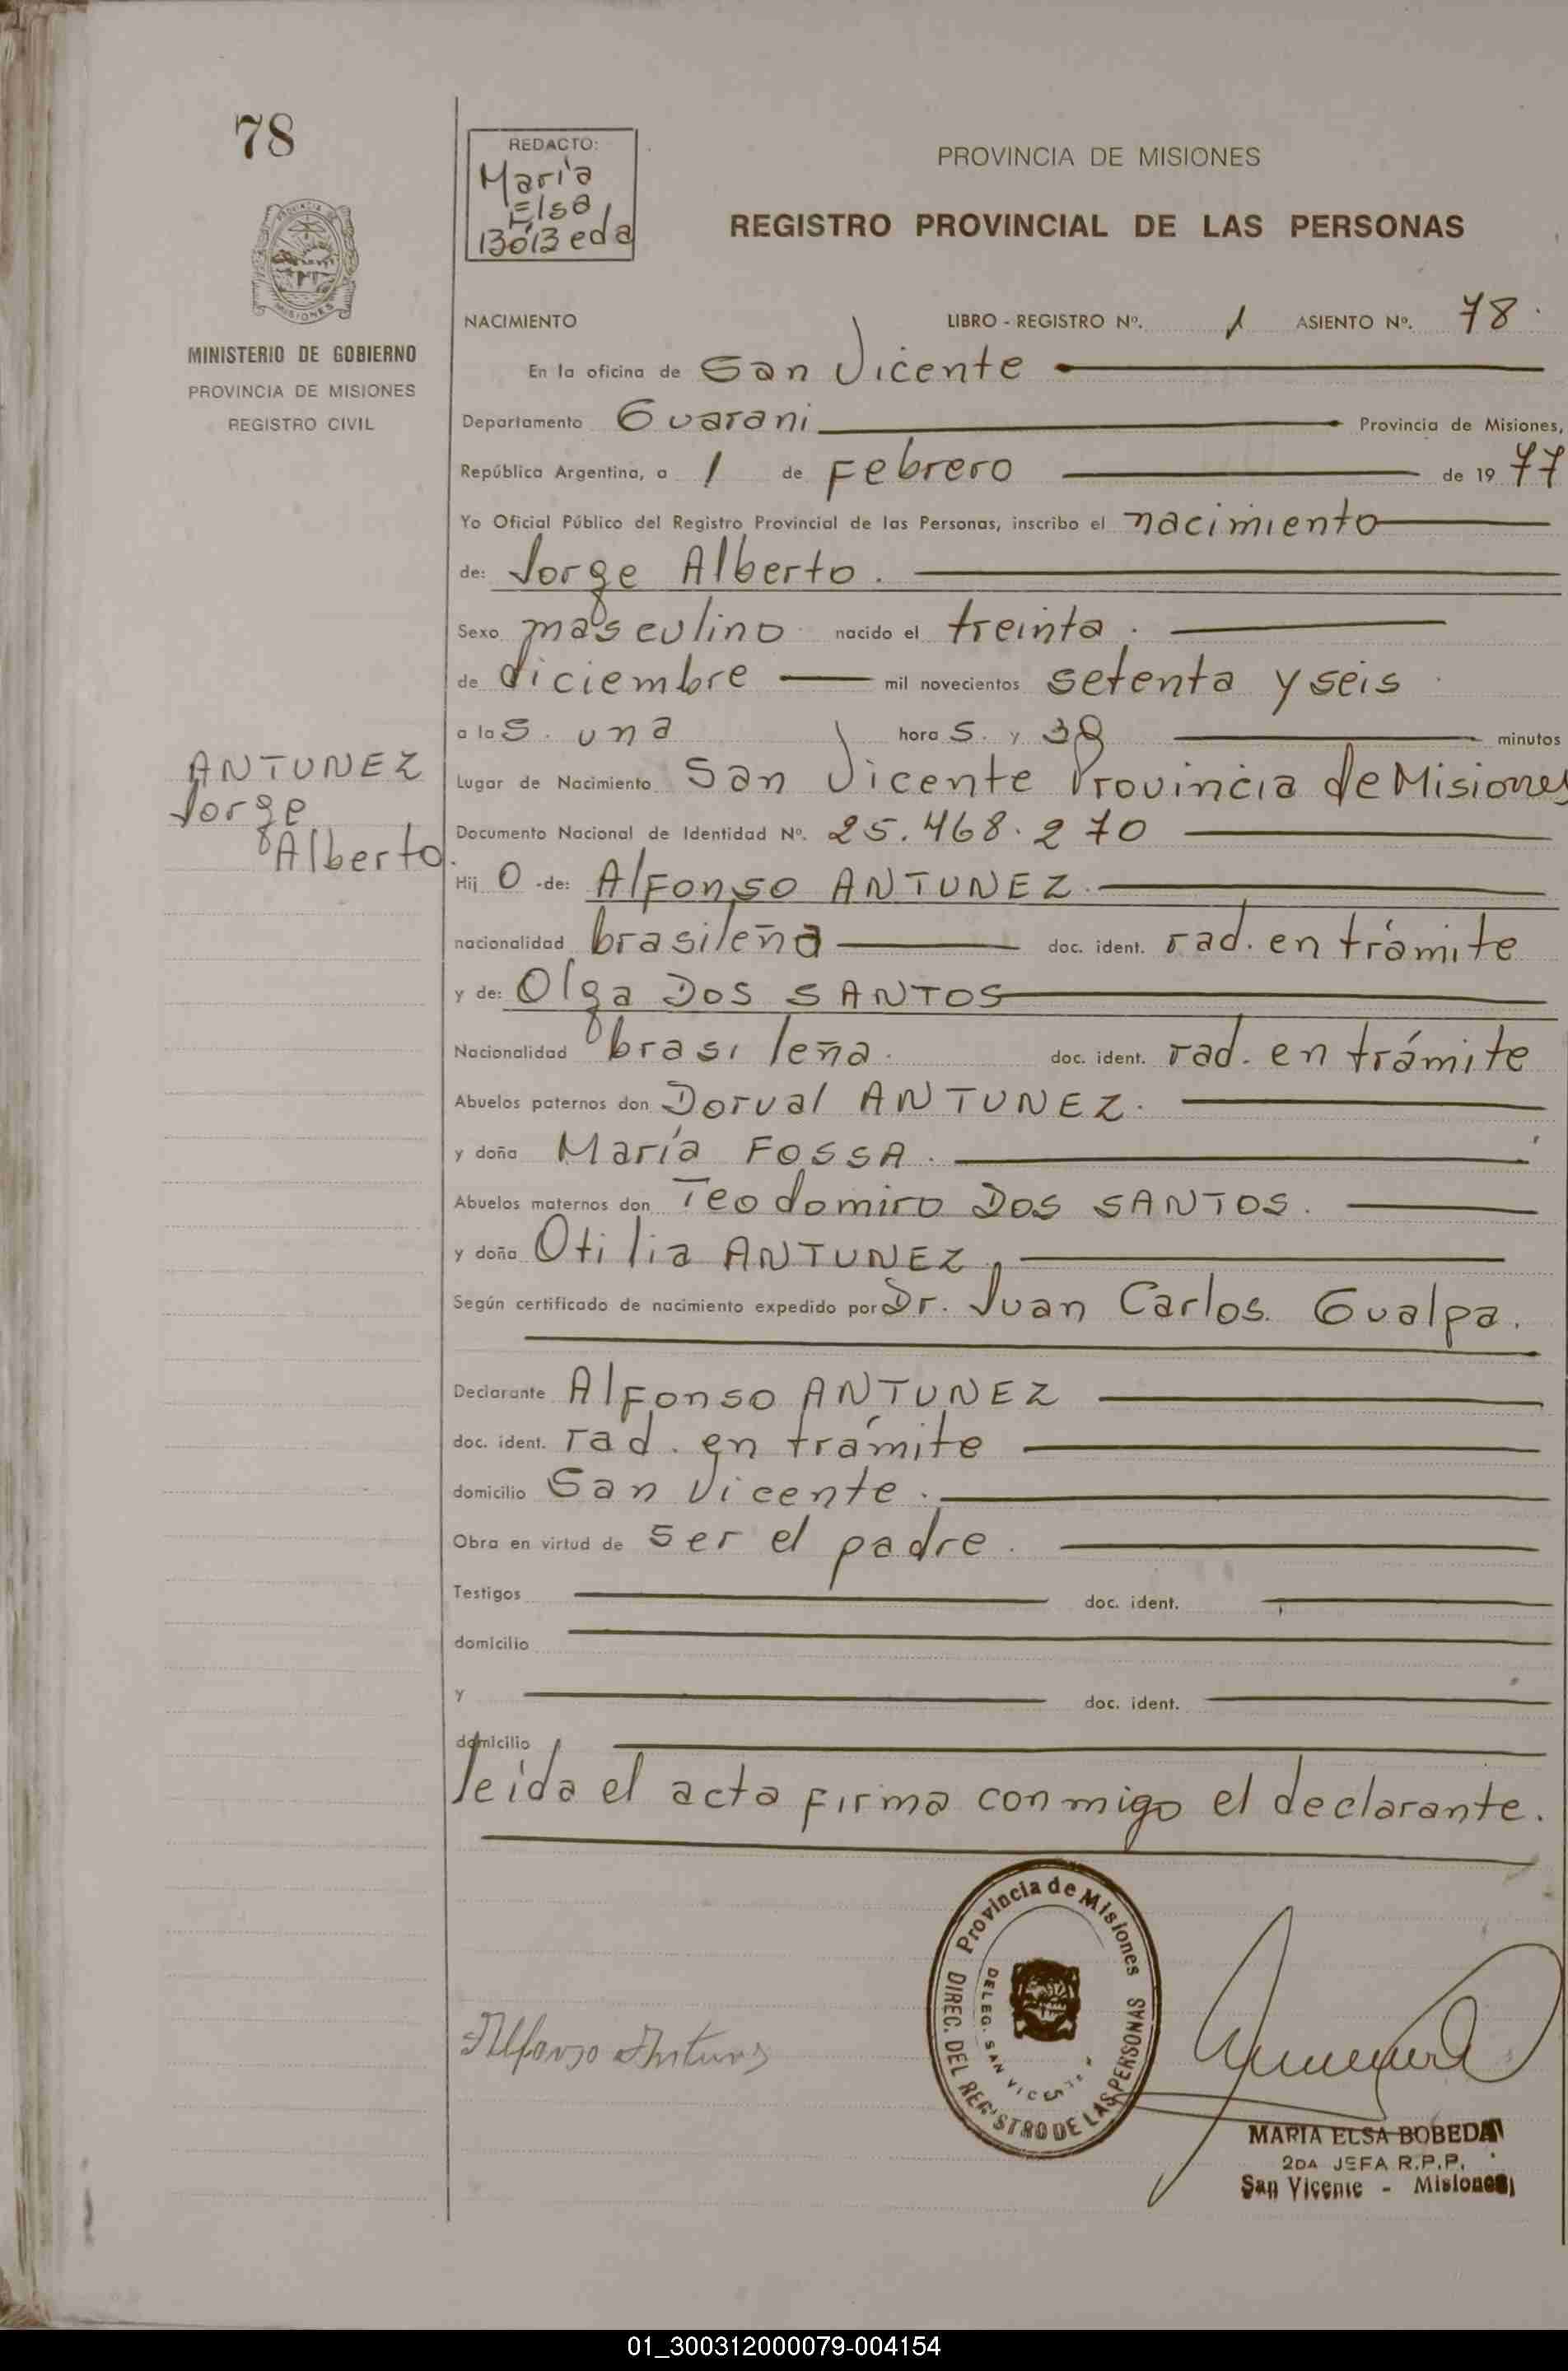 78
REDACTO:
María
Elsa
Bóbeda
PROVINCIA DE MISIONES
REGISTRO PROVINCIAL DE LAS PERSONAS
PROVINCIA DE
MISIONES
MINISTERIO DE GOBIERNO
PROVINCIA DE MISIONES
REGISTRO CIVIL
NACIMIENTO LIBRO - REGISTRO Nº. 1 ASIENTO Nº. 78.
En la oficina de San Vicente
Departamento Guarani Provincia de Misiones,
República Argentina, a 1 de Febrero de 19 77
Yo Oficial Público del Registro Provincial de las Personas, inscribo el nacimiento
de: Jorge Alberto.
Sexo masculino nacido el treinta.
de diciembre mil novecientos setenta y seis
a las. una horas. y 30 minutos
ANTUNEZ
Jorge
Alberto.
Lugar de Nacimiento San Vicente Provincia de Misiones
Documento Nacional de Identidad Nº. 25.468.270
Hij o -de: Alfonso ANTUNEZ.
nacionalidad brasileña doc. ident. rad. en trámite
y de: Olga DOS SANTOS
Nacionalidad brasileña. doc. ident. rad. en trámite
Abuelos paternos don Dorval ANTUNEZ.
y doña María FOSSA.
Abuelos maternos don Teodomiro DOS SANTOS.
y doña Otilia ANTUNEZ
Según certificado de nacimiento expedido por Dr. Juan Carlos Gualpa.
Declarante Alfonso ANTUNEZ
doc. ident. rad. en trámite
domicilio San Vicente.
Obra en virtud de ser el padre.
Testigos doc. ident.
domicilio
y doc. ident.
domicilio
leída el acta firma conmigo el declarante.
Provincia de Misiones
DIREC. DEL REGISTRO DE LAS PERSONAS
DELEG. SAN VICENTE
Alfonso
MARIA ELSA BOBEDA
2DA JEFA R.P.P.
San Vicente - Misiones
01_300312000079-004154